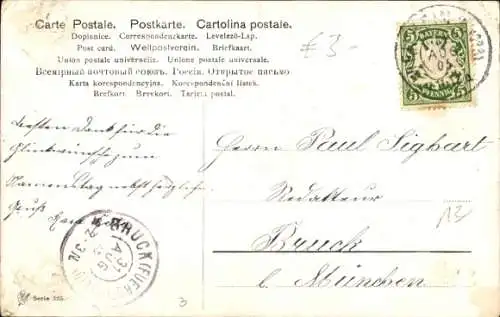 Carte Postale. Postkarte. Cartolina postale.
Dopisnice. Correspondenzkarte. Levelező-Lap.
Post card. Weltpostverein. Briefkaart.
Union postale universelle. Unione postale universale.
Всемірный почтовый союзъ. Россія. Открытое письмо
Karta korespondencyjna. Korespondenční lístek.
Brefkort. Brevkort. Tarjeta postal.
£ 3-
BAYERN
5 5
PFENNIG
Besten Dank für die
Glückwünsche zum
Namenstag nebst herzlichen
Gruß
Herrn Paul Sighart
Redakteur
Bruck
b. München
13
BRUCK
31
AUG
3
Serie 325